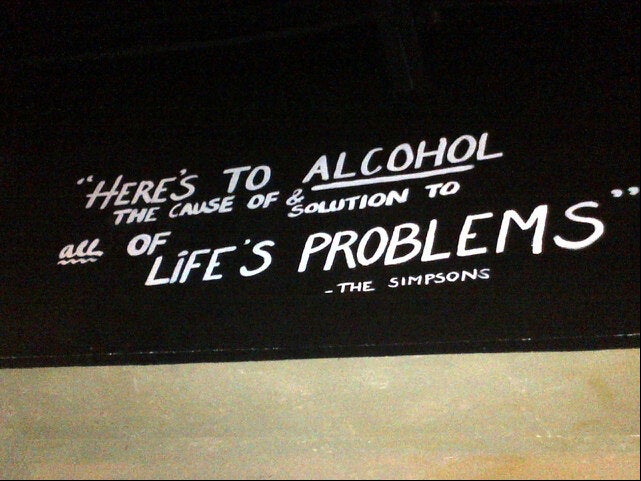 "HERE'S TO ALCOHOL
THE CAUSE OF & SOLUTION TO
all OF
LiFE'S PROBLEMS"
- THE SIMPSONS